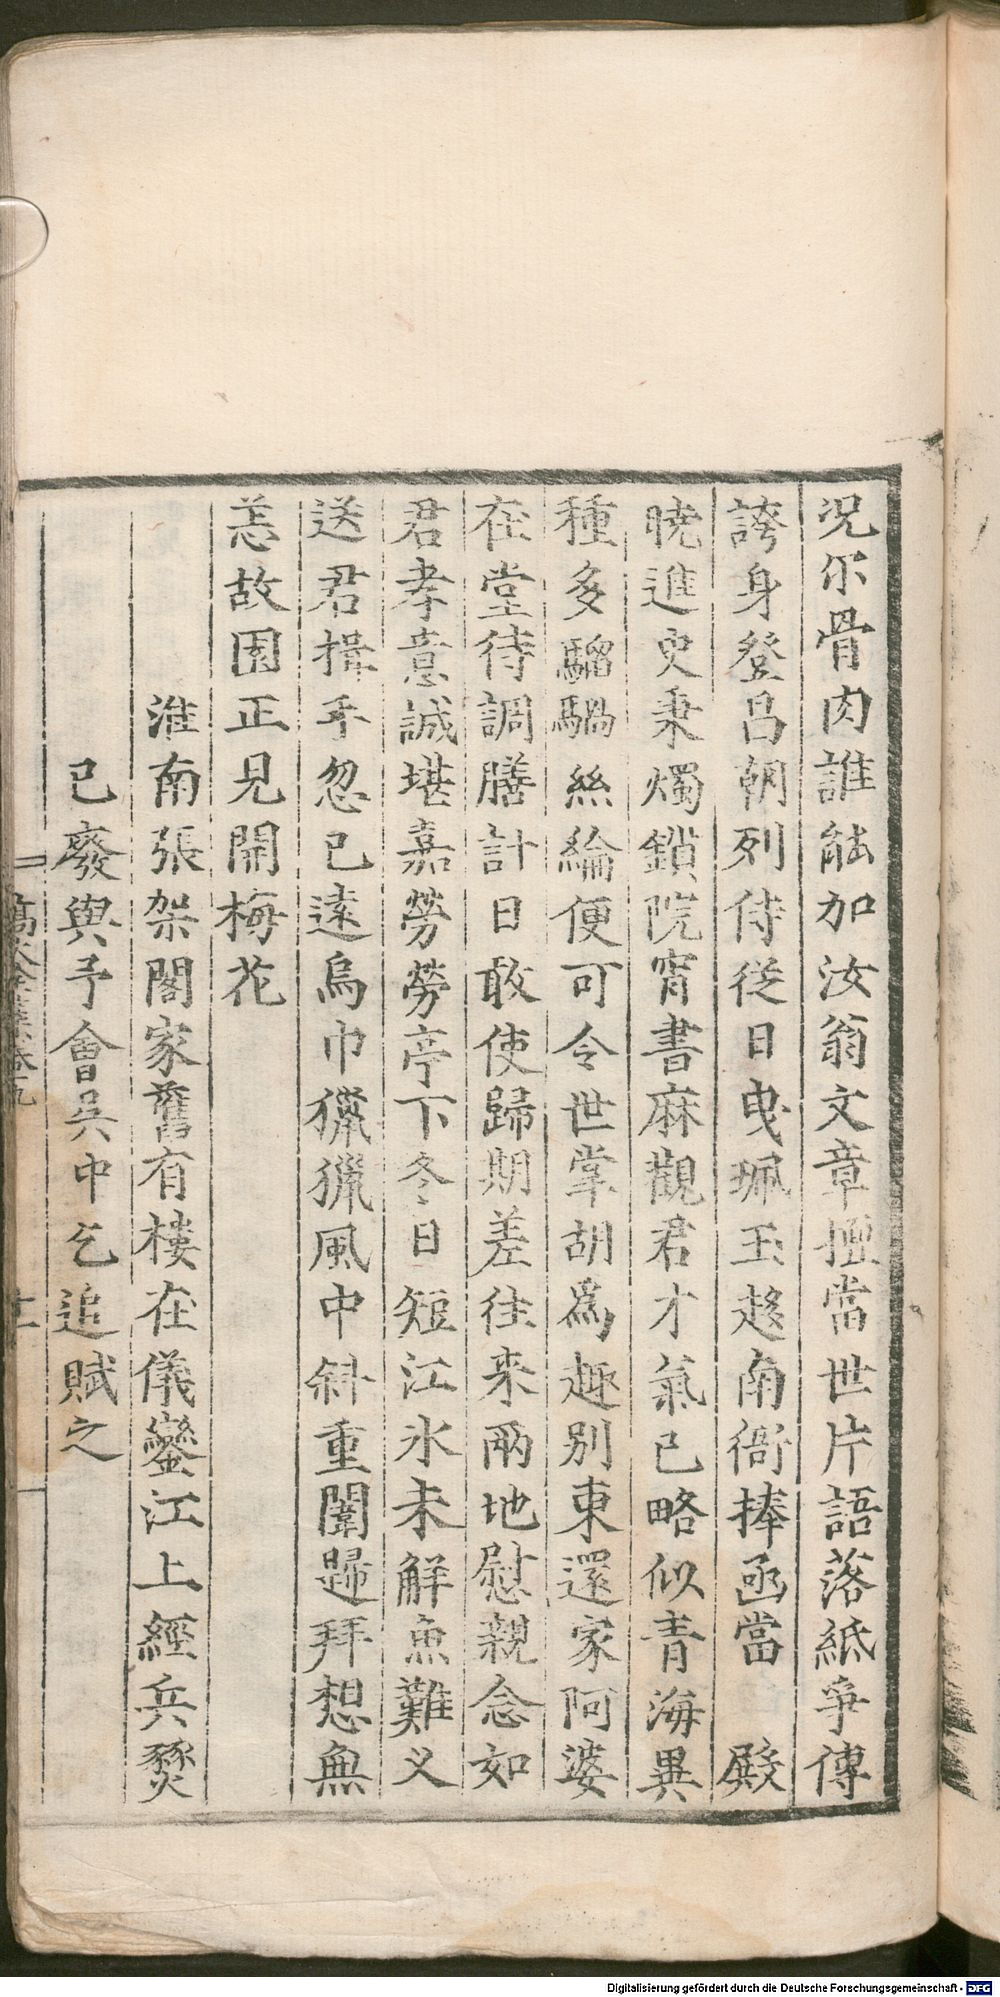 况尓骨肉誰能加汝翁文章擅當世片語落紙爭傳
誇身登呂朝列侍從日曳珮玉趍南衙捧函當 殿
曉進史秉燭鎖院宵書麻觀君才氣已略似青海異
種多騮騧絲綸便可令世掌胡爲趣別東還家阿婆
在堂待調膳計日敢使歸期差往来兩地慰親念如
君孝意誠堪嘉勞勞亭下冬日短江氷未解魚難义
送君揖手忽已遠烏巾獵獵風中斜重闈歸拜想無
恙故園正見開梅花
淮南張架閣家舊有樓在儀鑾江上經兵燹
已廢與予會吳中乞追賦之
高太全集卷九
十一
Digitalisierung gefördert durch die Deutsche Forschungsgemeinschaft - DFG